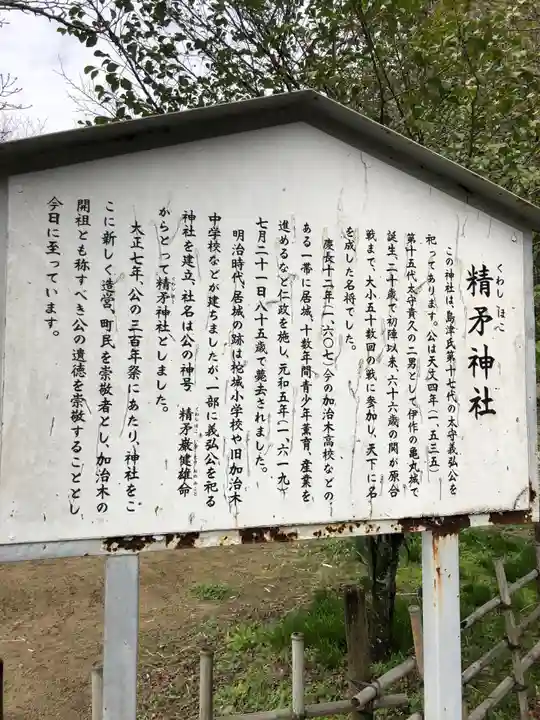 精矛神社
くわしほこ
この神社は、島津氏第十七代の太守義弘公を
祀ってあります。公は天文四年（一、五三五）
第十五代、太守貴久の二男として伊作の亀丸城で
誕生、二十歳で初陣以来、六十六歳の関が原合
戦まで、大小五十数回の戦に参加し、天下に名
を成した名将でした。
慶長十二年（一、六〇七）今の加治木高校などの
ある一帯に居城、十数年間青少年薫育、産業を
進めるなど仁政を施し、元和五年（一、六一九）
七月二十一日八十五歳で薨去されました。
明治時代、居城の跡は柁城小学校や旧加治木
中学校などが建ちましたが、一部に義弘公を祀る
神社を建立、社名は公の神号 精矛厳健雄命
からとって精矛神社としました。
大正七年、公の三百年祭にあたり、神社をこ
こに新しく造営、町民を崇敬者とし、加治木の
開祖とも称すべき公の遺徳を崇敬することとし
今日に至っています。